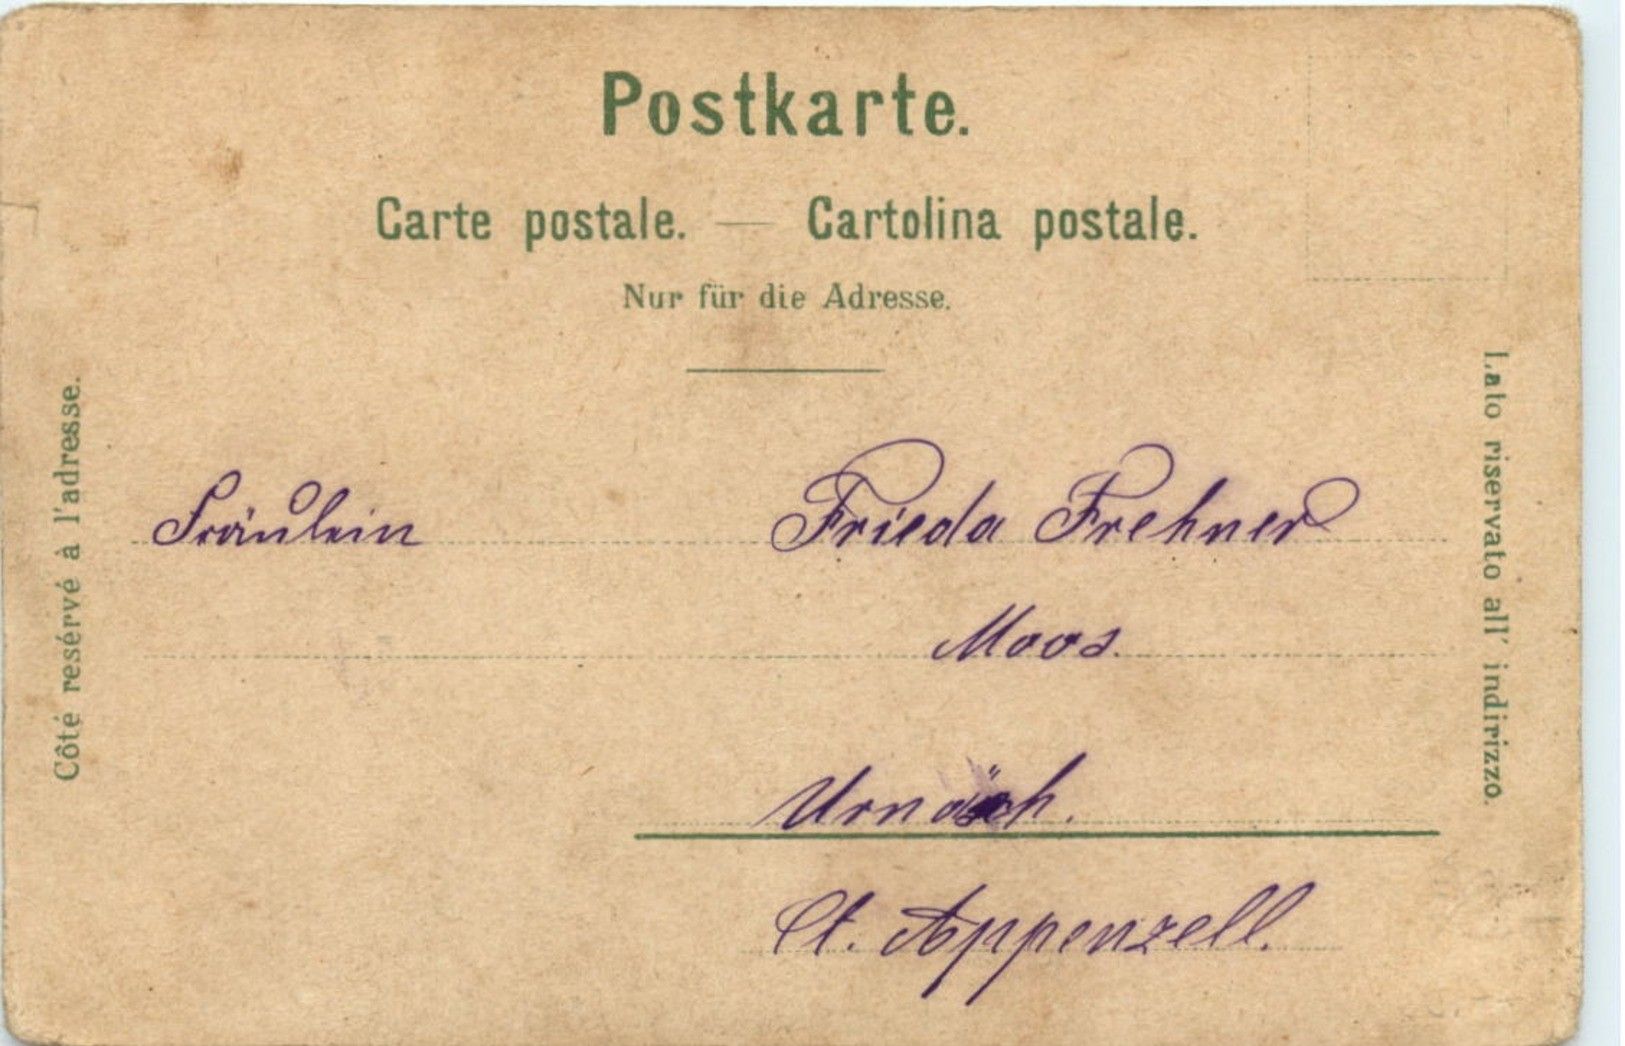 Postkarte.
Carte postale. — Cartolina postale.
Nur für die Adresse.
Côté resérvé à l'adresse.
Lato riservato all' indirizzo.
Fräulein Frieda Frehner
Moos.
Urnäsch.
Ct. Appenzell.